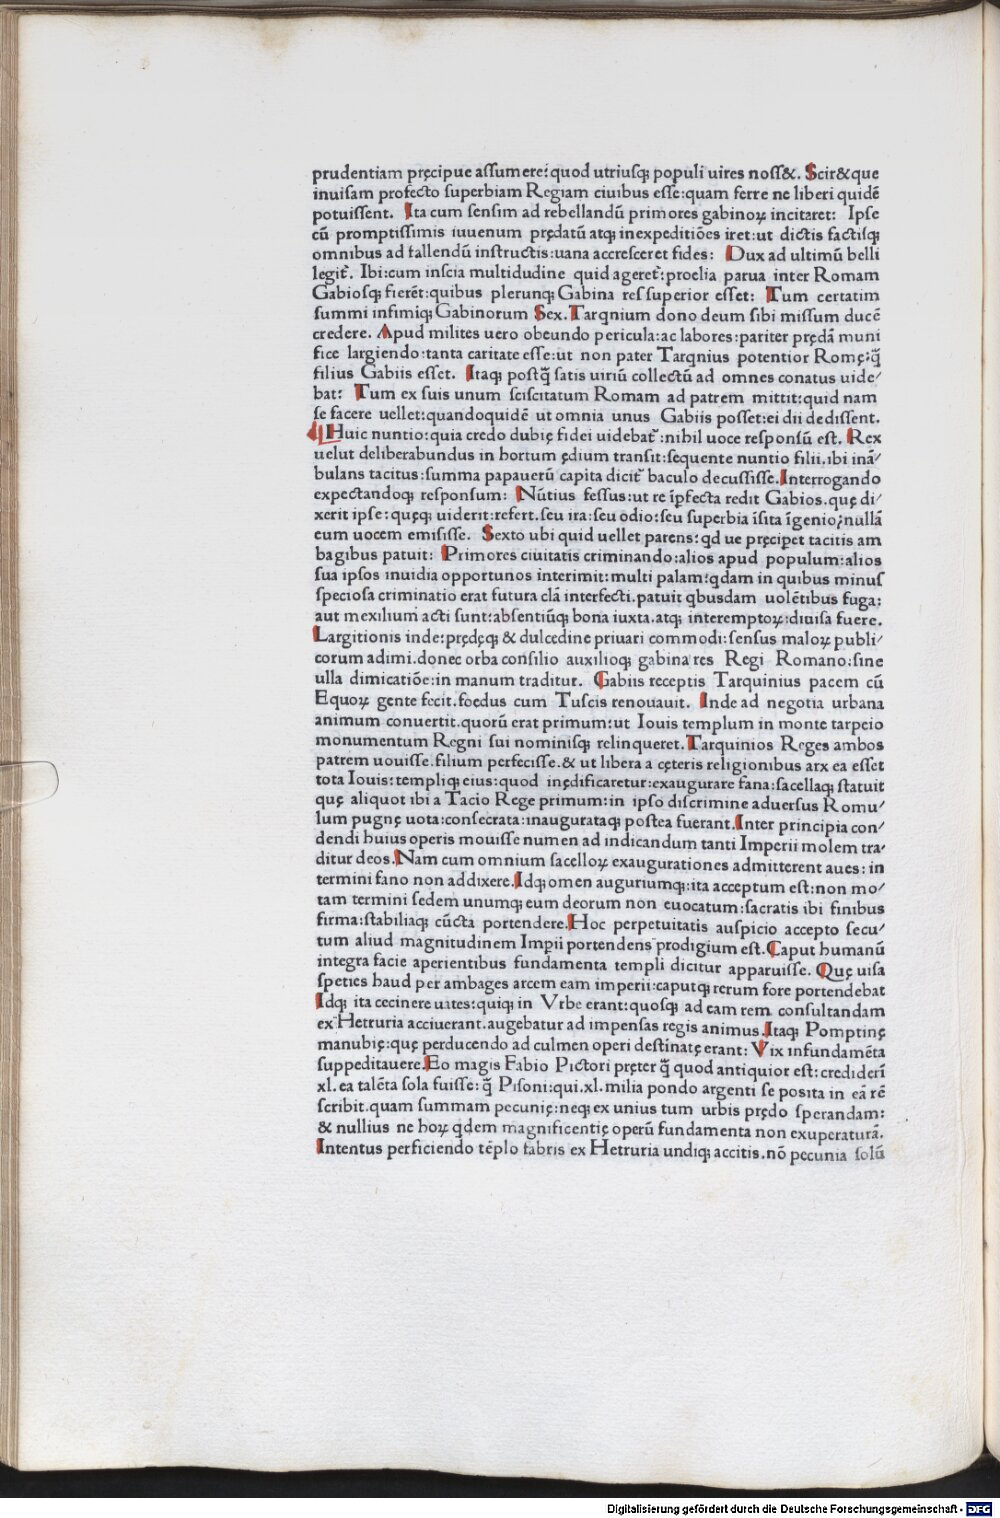 prudentiam pręcipue aſſumere: quod utriuſq; populi uires noſſ&. Scir&que
inuiſam profecto ſuperbiam Regiam ciuibus eſſe: quam ferre ne liberi quidē
potuiſſent. Ita cum ſenſim ad rebellandū primores gabinoꝝ incitaret: Ipſe
cū promptiſſimis iuuenum prędatū atq; inexpeditiões iret: ut dictis factiſq;
omnibus ad fallendū inſtructis: uana accreſceret fides: Dux ad ultimū belli
legit᷑. Ibi: cum inſcia multidudine quid ageret᷑: proelia parua inter Romam
Gabioſq; fierēt: quibus plerunq; Gabina reſ ſuperior eſſet: Tum certatim
ſummi infimiq; Gabinorum Sex. Tarqnium dono deum ſibi miſſum ducē
credere. Apud milites uero obeundo pericula: ac labores: pariter prędā muni
fice largiendo: tanta caritate eſſe: ut non pater Tarqnius potentior Romę: q̄
filius Gabiis eſſet. Itaq; poſtq̄ ſatis uiriū collectū ad omnes conatus uide⸗
bat: Tum ex ſuis unum ſciſcitatum Romam ad patrem mittit: quid nam
ſe facere uellet: quandoquidē ut omnia unus Gabiis poſſet: ei dii dediſſent.
Huic nuntio: quia credo dubię fidei uidebat᷑: nihil uoce reſponſū eſt. Rex
uelut deliberabundus in hortum ędium tranſit: ſequente nuntio filii. ibi inā⸗
bulans tacitus: ſumma papauerū capita dicit᷑ baculo decuſſiſſe. Interrogando
expectandoq; reſponſum: Nūtius feſſus: ut re īpfecta redit Gabios. quę di⸗
xerit ipſe: quęq; uiderit: refert. ſeu ira: ſeu odio: ſeu ſuperbia īſita īgenio; nullā
eum uocem emiſiſſe. Sexto ubi quid uellet parens: qd ue pręcipet tacitis am
bagibus patuit: Primores ciuitatis criminando: alios apud populum: alios
ſua ipſos inuidia opportunos interimit: multi palam: qdam in quibus minuſ
ſpecioſa criminatio erat futura clā interfecti. patuit qbuſdam uolētibus fuga:
aut mexilium acti ſunt: abſentiūq; bona iuxta. atq; interemptoꝝ: diuiſa fuere.
Largitionis inde: prędęq; & dulcedine priuari commodi: ſenſus maloꝝ publi⸗
corum adimi. donec orba conſilio auxilioq; gabina res Regi Romano: ſine
ulla dimicatiõe: in manum traditur. Gabiis receptis Tarquinius pacem cū
Equoꝝ gente fecit. foedus cum Tuſcis renouauit. Inde ad negotia urbana
animum conuertit. quorū erat primum: ut Iouis templum in monte tarpeio
monumentum Regni ſui nominiſq; relinqueret. Tarquinios Reges ambos
patrem uouiſſe. filium perfeciſſe. & ut libera a cęteris religionibus arx ea eſſet
tota Iouis: templiq; eius: quod inędificaretur: exaugurare fana: ſacellaq; ſtatuit
quę aliquot ibi a Tacio Rege primum: in ipſo diſcrimine aduerſus Romu⸗
lum pugnę uota: conſecrata: inaugurataq; poſtea fuerant. Inter principia con⸗
dendi huius operis mouiſſe numen ad indicandum tanti Imperii molem tra⸗
ditur deos. Nam cum omnium ſacelloꝝ exaugurationes admitterent aues: in
termini fano non addixere. Idq; omen auguriumq;: ita acceptum eſt: non mo⸗
tam termini ſedem unumq; eum deorum non euocatum: ſacratis ibi finibus
firma: ſtabiliaq; cūcta portendere. Hoc perpetuitatis auſpicio accepto ſecu⸗
tum aliud magnitudinem Impii portendens prodigium eſt. Caput humanū
integra facie aperientibus fundamenta templi dicitur apparuiſſe. Quę uiſa
ſpeties haud per ambages arcem eam imperii: caputq; rerum fore portendebat
Idq; ita cecinere uates: quiq; in Vrbe erant: quoſq; ad eam rem conſultandam
ex Hetruria acciuerant. augebatur ad impenſas regis animus. Itaq; Pomptinę
manubię: quę perducendo ad culmen operi deſtinatę erant: Vix infundamēta
ſuppeditauere. Eo magis Fabio Pictori pręter q̄ quod antiquior eſt: crediderī
xl. ea talēta ſola fuiſſe: q̄ Piſoni: qui. xl. milia pondo argenti ſe poſita in eā rē
ſcribit. quam ſummam pecunię: neq; ex unius tum urbis prędo ſperandam:
& nullius ne hoꝝ qdem magnificentię operū fundamenta non exuperaturā.
Intentus perficiendo tēplo fabris ex Hetruria undiq; accitis. nō pecunia ſolū
Digitalisierung gefördert durch die Deutsche Forschungsgemeinschaft - DFG